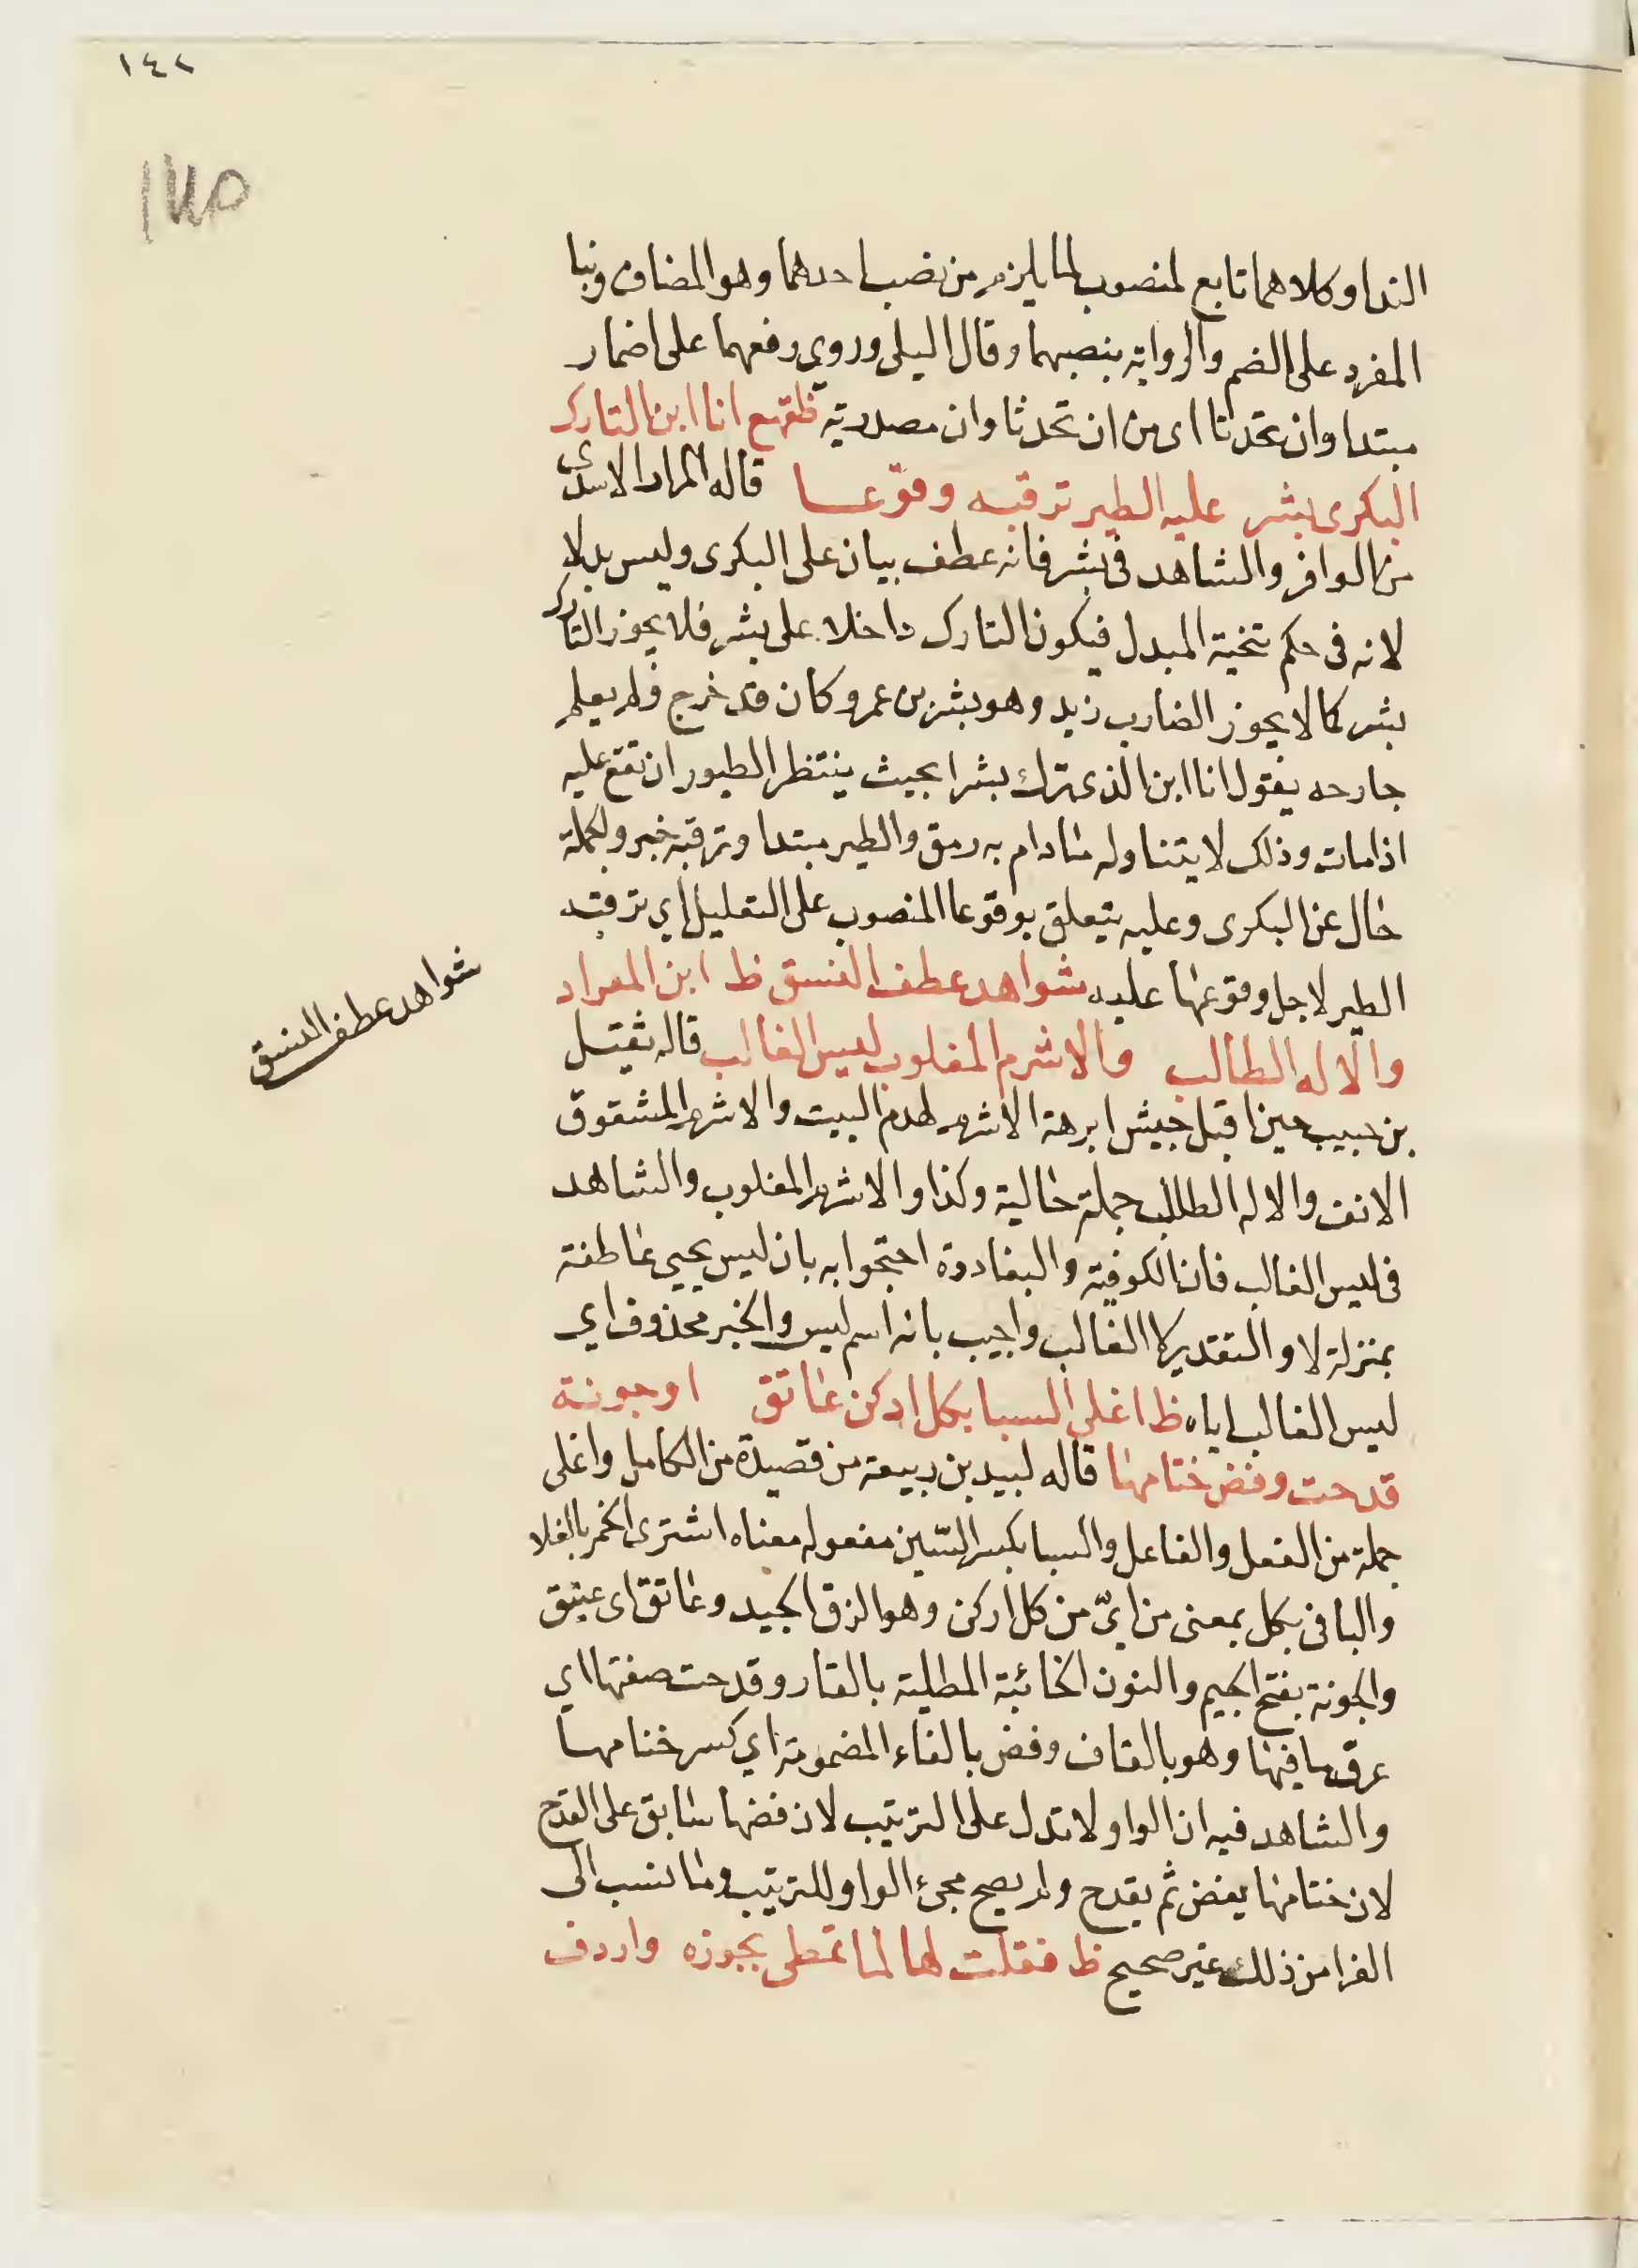 ١٤٢
الندا وكلاهما تابع لمنصوب لما يلزم من نصب احدهما وهو المضاف وبنا
المفرد على الضم والرواية بنصبهما وقال النيلى وروى رفعهما على اضمار
مبتدا وان تحدثا اى من ان تحدثا وان مصدرية ظقهع انا ابن التارك
البكرى بشر عليه الطير ترقبه وقوعا قاله المرار الاسدى
من الوافر والشاهد فى بشر فانه عطف بيان على البكرى وليس بدلا
لانه فى حكم تنحية المبدل فيكون التارك داخلا على بشر فلا يجوز التارك
بشر كما لا يجوز الضارب زيد وهو بشر بن عمرو كان قد خرج ولم يعلم
جارحه يقول انا ابن الذى ترك بشرا بحيث ينتظر الطيور ان تقع عليه
اذا مات وذلك لا يتناوله ما دام به رمق والطير مبتدا وترقبه خبر والجملة
حال عن البكرى وعليه يتعلق بوقوعا المنصوب على التعليل اي ترقبه
الطير لاجل وقوعها عليه شواهد عطف النسق ظ اين المفر اد
شواهد عطف النسق
والاله الطالب والاشرم المغلوب ليس الغالب قاله نفيل
بن حبيب حين اقبل جيش ابرهة الاشرم لهدم البيت والاشرم المشقوق
الانف والاله الطالب جملة حالية وكذا والاشرم المغلوب والشاهد
فى ليس الغالب فان الكوفية والبغاددة احتجوا به بان ليس يجيى عاطفة
بمنزلة لا والتقدير لا الغالب واجيب بانه اسم ليس والخبر محذوف اي
ليس الغالب اياه ظ اغلى السبا بكل ادكن عاتق او جونة
قدحت وفض ختامها قاله لبيد بن ربيعة من قصيدة من الكامل واغلى
جملة من الفعل والفاعل والسبا بكسر السّين مفعوله معناه اشترى الخمر بالغلا
والبا فى بكل بمعنى من ايّ من كل ادكن وهو الزق الجيد وعاتق اى عتيق
والجونة بفتح الجيم والنون الخابئة المطلية بالقار وقدحت صفتها اي
غرف ما فيها وهو بالقاف وفض بالفاء المضمومة اي كسر ختامها
والشاهد فيه ان الواو لا تدل على الترتيب لان فضها سابق على القدح
لان ختامها يفض ثم يقدح ولم يصح مجىء الواو للترتيب وما نسب الى
الفرا من ذلك غير صحيح ظ فقلت لها لما تمطى بجوزه واردف